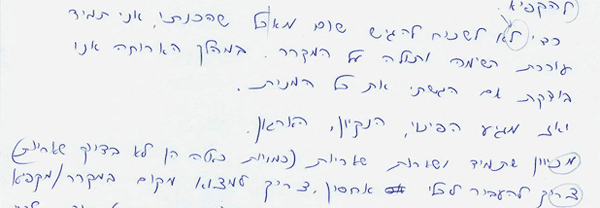 להקפיא.
כדי לא לשכוח להגיש שום מאכל שהכנתי, אני תמיד
עורכת רשימה ותולה על המקרר. במהלך הארוחה אני
בודקת אם הגשתי את כל המנות.
ואז מגיע הפינוי, הנקיון, הארגון.
מכיוון שתמיד נשארות שאריות (כמויות כאלה הן לא בדיוק שאריות)
צריך להעביר לכלי אחסון, צריך למצוא מקום במקרר/מקפיא